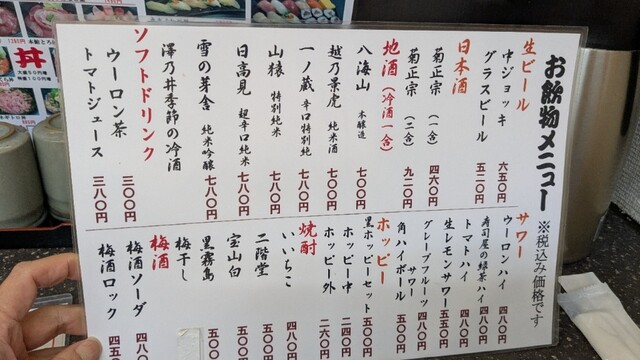 お飲物メニュー
※税込み価格です
生ビール
中ジョッキ 六五〇円
グラスビール 五二〇円
日本酒
菊正宗(一合) 四六〇円
菊正宗(二合) 九二〇円
地酒(冷酒一合)
八海山 本醸造 七〇〇円
越乃景虎 純米酒 七〇〇円
一ノ蔵 辛口特別純米 七八〇円
山猿 特別純米 七八〇円
日高見 超辛口純米 七八〇円
雪の芽舎 純米吟醸 七八〇円
澤乃井季節の冷酒
ソフトドリンク
ウーロン茶 三〇〇円
トマトジュース 三八〇円
サワー
ウーロンハイ 四八〇円
寿司屋の緑茶ハイ 四八〇円
トマトハイ 四八〇円
生レモンサワー 五五〇円
グレープフルーツサワー 四八〇円
角ハイボール 五〇〇円
ホッピー
黒ホッピーセット 五〇〇円
ホッピー中 二四〇円
ホッピー外 二六〇円
焼酎
いいちこ 四八〇円
二階堂 五〇〇円
宝山白 五〇〇
黒霧島 五〇〇
梅干し
梅酒
梅酒ソーダ 四八〇
梅酒ロック 四五
丼